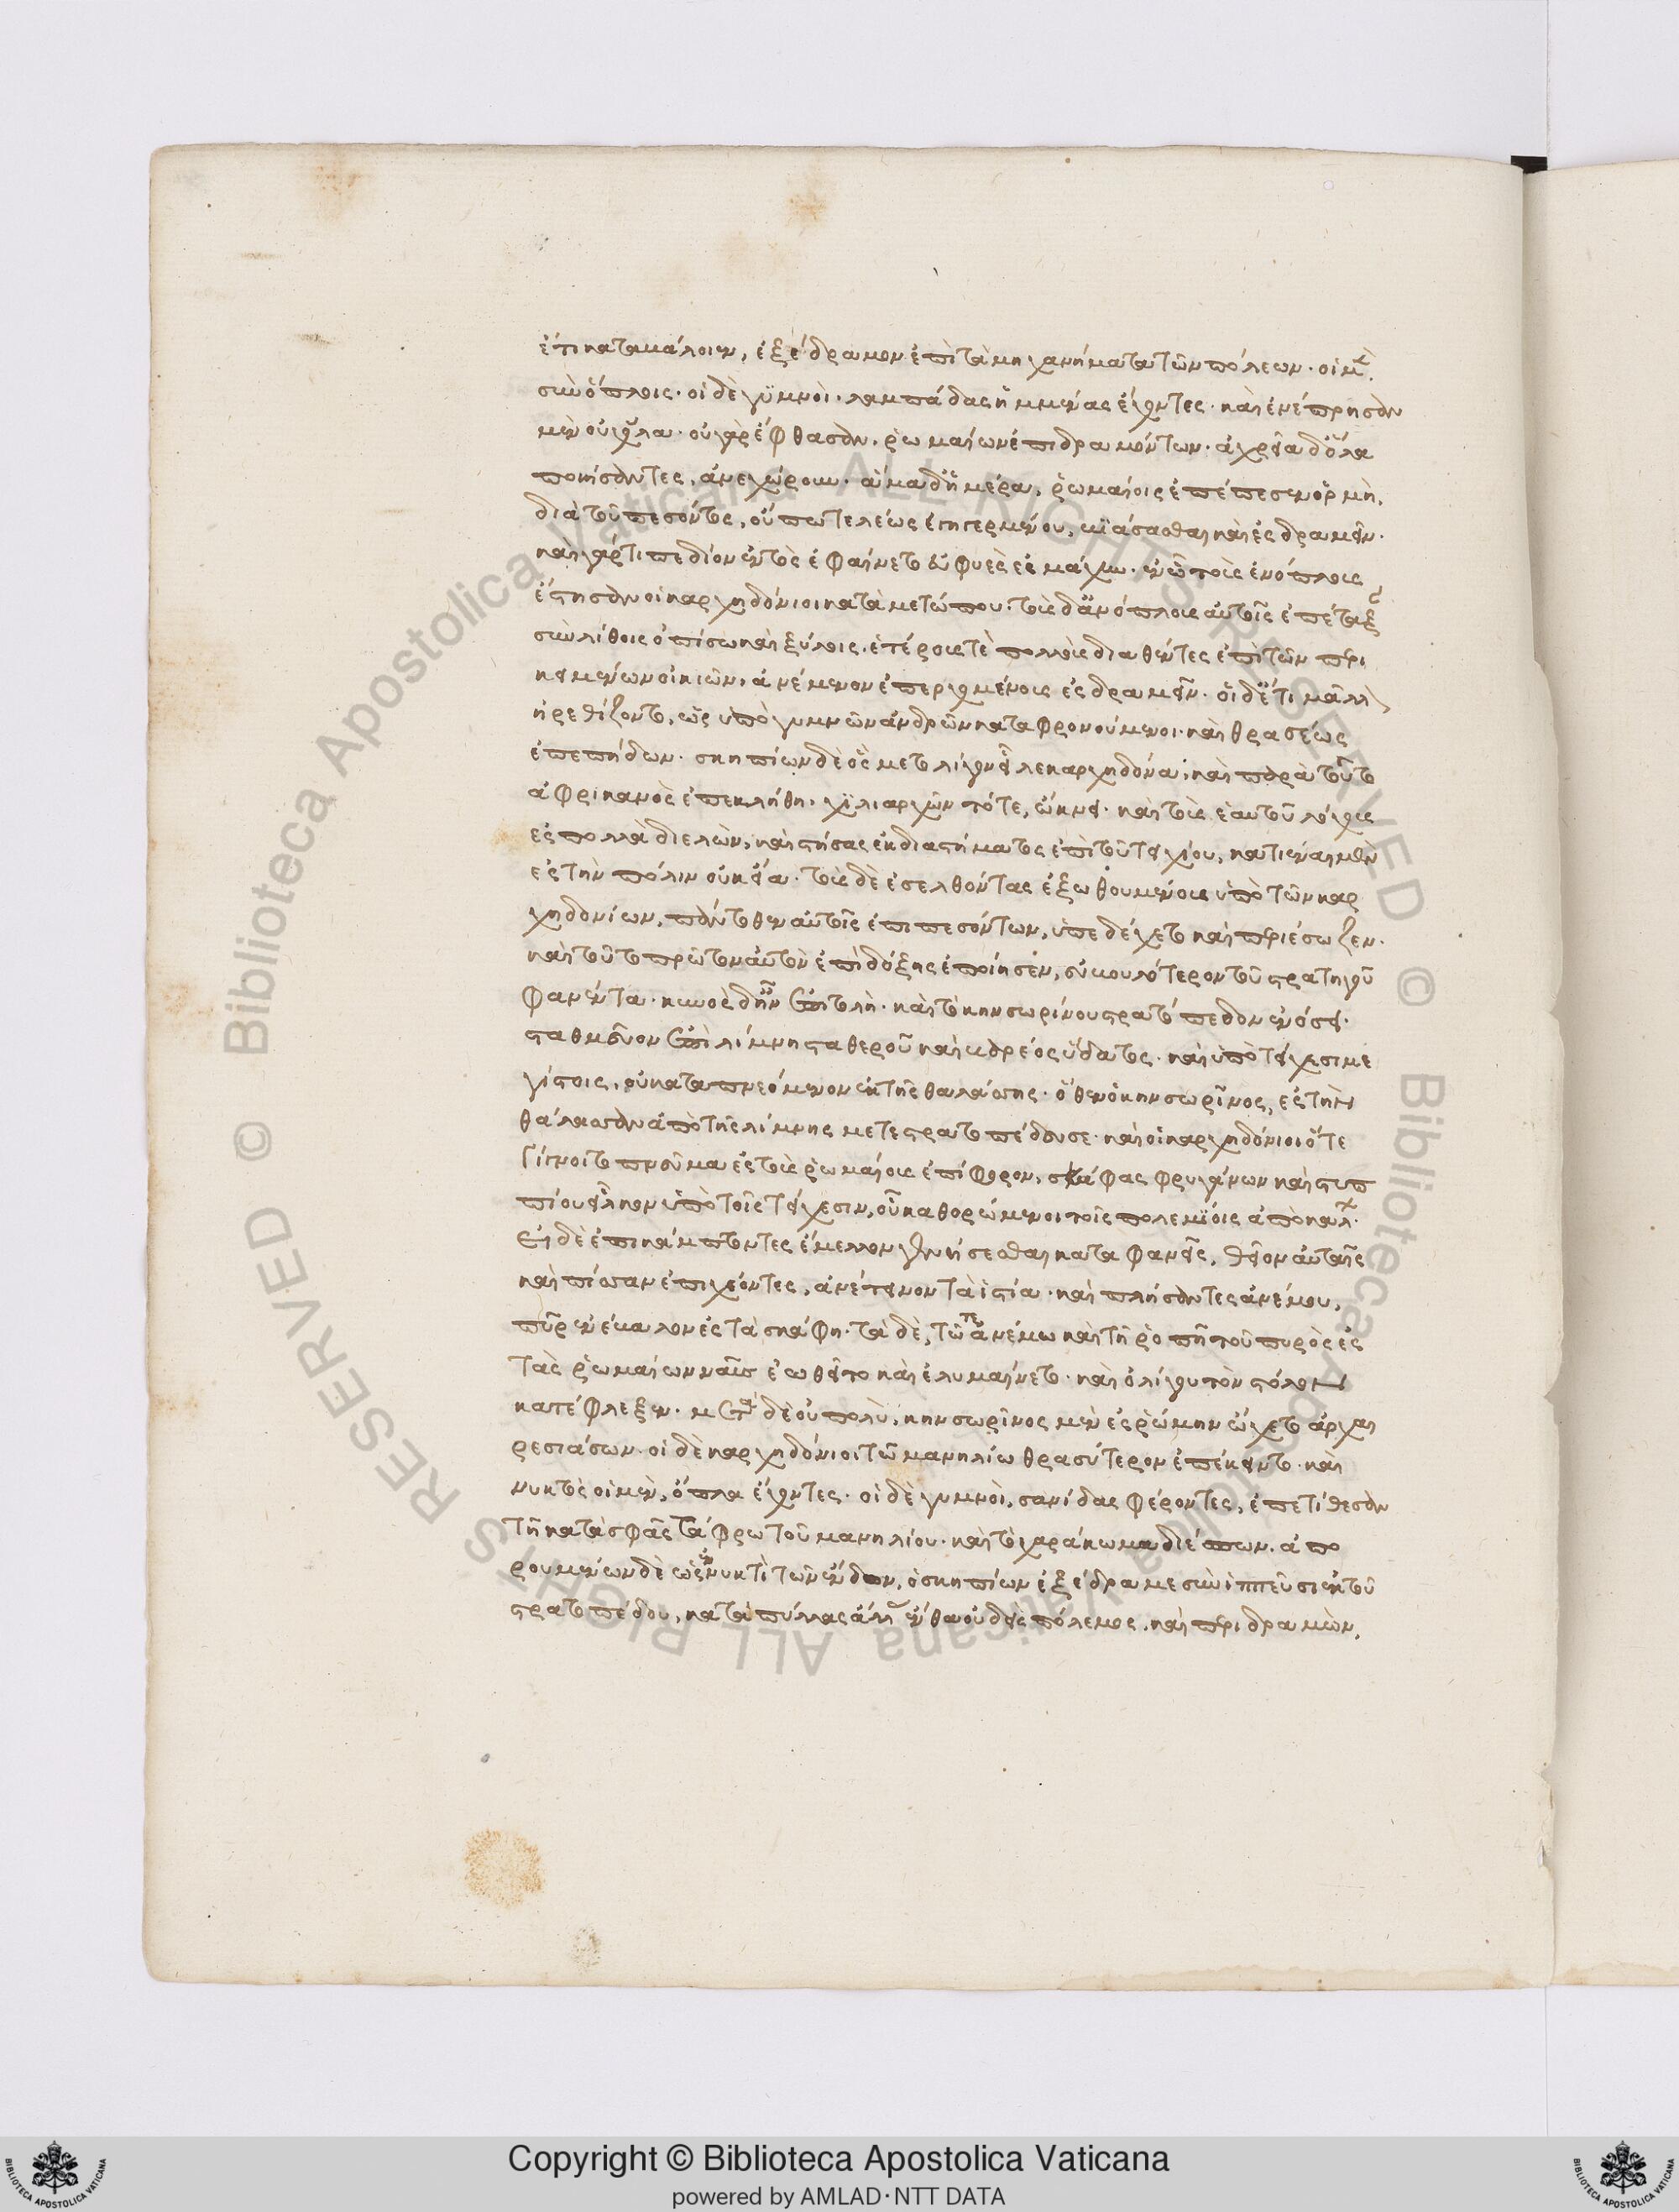 ἔτι καταμάλοιεν, ἐξέδραμον ἐπὶ τὰ μηχανήματα τῶν πόλεων. οἱ μὲν
σὺν ὅπλοις. οἱ δὲ γυμνοὶ. λαμπάδας ἡμμένας ἔχοντες. καὶ ἐνέπρησαν
μὲν οὐχ ὅλα. οὐ γὰρ ἔφθασαν. ῥωμαίων ἐπιδραμόντων. ἀχρεῖα δ' ὅλα
ποιήσαντες, ἀνεχώρουν. ἅμα δ' ἡμέρα, ῥωμαίοις ἐπέπεσεν ὁρμὴ,
διὰ τοῦ πεσόντος, οὔπω τελέως ἐγηγερμένου, βιάσασθαι καὶ ἐσδραμεῖν.
καὶ γάρ τι πεδίον ἐντὸς ἐφαίνετο εὐφυὲς ἐς μάχην. ἐν ᾧ τοὺς ἐνόπλους
ἔστησαν οἱ καρχηδόνιοι κατὰ μετώπου. τοὺς δ' ἀνόπλους αὐτοῖς ἐπέταξαν
σὺν λίθοις ὀπίσω καὶ ξύλοις. ἑτέρους τὲ πολλοὺς διαθέντες ἐπὶ τῶν περι
κειμένων οἰκιῶν, ἀνέμενον ἐπερχομένους ἐσδραμεῖν. οἱ δ' ἔτι μᾶλλον
ἠρεθίζοντο, ὡς ὑπὸ γυμνῶν ἀνδρῶν καταφρονούμενοι. καὶ θρασέως
ἐπεπήδων. σκηπίων δὲ ὃς μετ' ὀλίγον εἷλε καρχηδόνα. καὶ παρὰ τοῦτο
ἀφρικανὸς ἐπεκλήθη. χιλιαρχῶν τότε, ὤκνει. καὶ τοὺς ἑαυτοῦ λόχους
ἐς πολλὰ διελὼν, καὶ στήσας ἐκ διαστήματος ἐπὶ τοῦ τειχίου, κατιέναι μὲν
ἐς τὴν πόλιν οὐκ εἴα. τοὺς δὲ ἐσελθόντας ἐξωθουμένους ὑπὸ τῶν καρ
χηδονίων, πάντοθεν αὐτοῖς ἐπιπεσόντων, ὑπεδέχετο καὶ περιέσωζεν.
καὶ τοῦτο πρῶτον αὐτὸν ἐπὶ δόξης ἐποίησεν, εὐβουλότερον τοῦ στρατηγοῦ
φανέντα. κυνὸς δ' ἦν ἐπιτολὴ. καὶ τὸ κηνσωρίνου στρατόπεδον ἐνόσει.
σταθμεῦον ἐπὶ λίμνη σταθεροῦ καὶ βαρέος ὕδατος. καὶ ὑπὸ τείχεσι με
γίστοις, οὐ καταπνεόμενον ἐκ τῆς θαλάσσης. ὅθεν ὁ κηνσωρῖνος, ἐς τὴν
θάλασσαν ἀπὸ τῆς λίμνης μετεστρατοπέδευσε. καὶ οἱ καρχηδόνιοι ὅτε
γίγνοιτο πνεῦμα ἐς τοὺς ῥωμαίους ἐπίφορον, σκάφας φρυγάνων καὶ στυπ
πίου εἷλκον ὑπὸ τοῖς τείχεσιν, οὐ καθορώμενοι τοῖς πολεμίοις ἀπὸ κάλων.
Εἰ δὲ ἐπικάμπτοντες ἔμελλον γενήσεσθαι καταφανεῖς, θεῖον αὐταῖς
καὶ πίσσαν ἐπιχέοντες, ἀνέτεινον τὰ ἱστία. καὶ πλήσαντες ἀνέμου,
πῦρ ἐνέβαλον ἐς τὰ σκάφη. τὰ δὲ, τῶ τε ἀνέμω καὶ τῆ ῥοπῆ τοῦ πυρὸς ἐς
τὰς ῥωμαίων ναῦς ἐωθεῖτο καὶ ἐλυμαίνετο. καὶ ὀλίγου τὸν στόλον
κατέφλεξεν. μετὰ δὲ οὐ πολὺ, κηνσωρῖνος μὲν ἐς ῥώμην ᾤχετο ἀρχαι
ρεσιάσων. οἱ δὲ καρχηδόνιοι τῶ μανηλίω θρασύτερον ἐπέκειντο. καὶ
νυκτὸς οἱ μὲν, ὅπλα ἔχοντες. οἱ δὲ γυμνοὶ, σανίδας φέροντες, ἐπετίθεσαν
τῆ κατὰ σφᾶς τάφρω τοῦ μανηλίου. καὶ τὸ χαράκωμα διέσπων. ἀπο
ρουμένων δὲ ὡς ἐν νυκτὶ τῶν ἔνδον, ὁ σκηπίων ἐξέδραμε σὺν ἱππεῦσι ἐκ τοῦ
στρατοπέδου, κατὰ πύλας ἄλλας ἔνθα οὐδεὶς πόλεμος. καὶ περιδραμὼν,
Copyright © Biblioteca Apostolica Vaticana
powered by AMLAD·NTT DATA